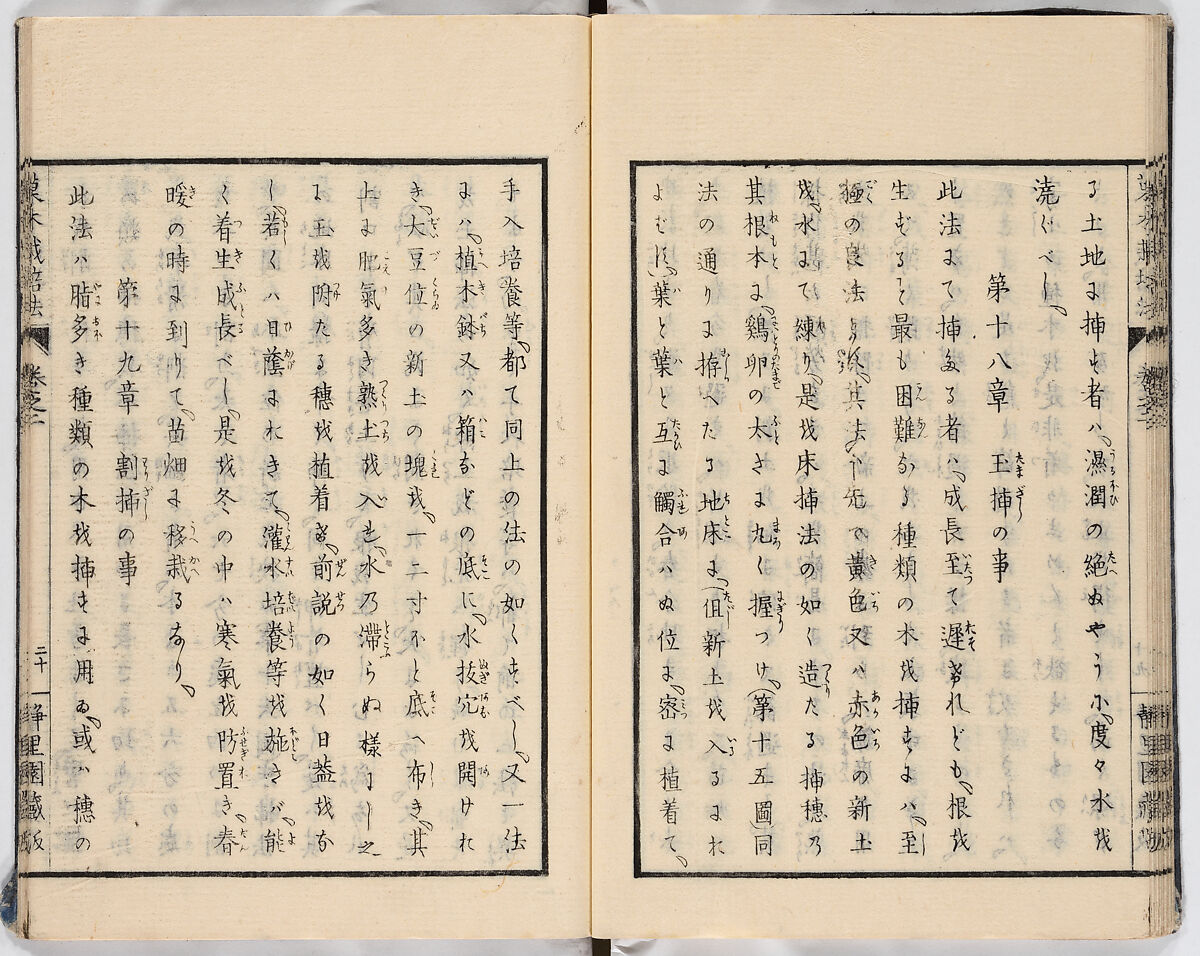 る土地に揷す者ハ、濕潤の絶ぬやうに、度々水を
澆ぐべし、
第十八章　玉揷の事
此法にて揷たる者ハ、成長至て遲けれども、根を
生ずること最も困難なる種類の木を揷すにハ、至
極の良法とす、其法ハ先で黄色又ハ赤色の新土
を、水にて練り、是を床揷法の如く造たる揷穗乃
其根本に、鷄卵の太さに丸く握つけ、(第十五圖)同
法の通りに拵へたる地床に、(但新土を入るにお
よばず)葉と葉と互に觸合ハぬ位に、密に植着て、
手入培養等、都て同上の法の如くすべし、又一法
にハ、植木鉢又ハ箱などの底に、水拔穴を開けお
き、大豆位の新土の塊を、一二寸ほど底へ布き、其
上に肥氣多き熟土を入れ、水乃滯らぬ樣にし之
に玉を附たる穗を植着き、前説の如く日蓋をな
し、若くハ日蔭におきて、灌水培養等を施さバ、能
く着生成長べし、是を冬の中ハ寒氣を防置き、春
暖の時に到りて、苗畑に移栽るなり、
第十九章　割揷の事
此法ハ脂多き種類の木を揷すに用ゐ、或ハ穗の
菓木栽培法　卷之二　二十　靜里園藏版